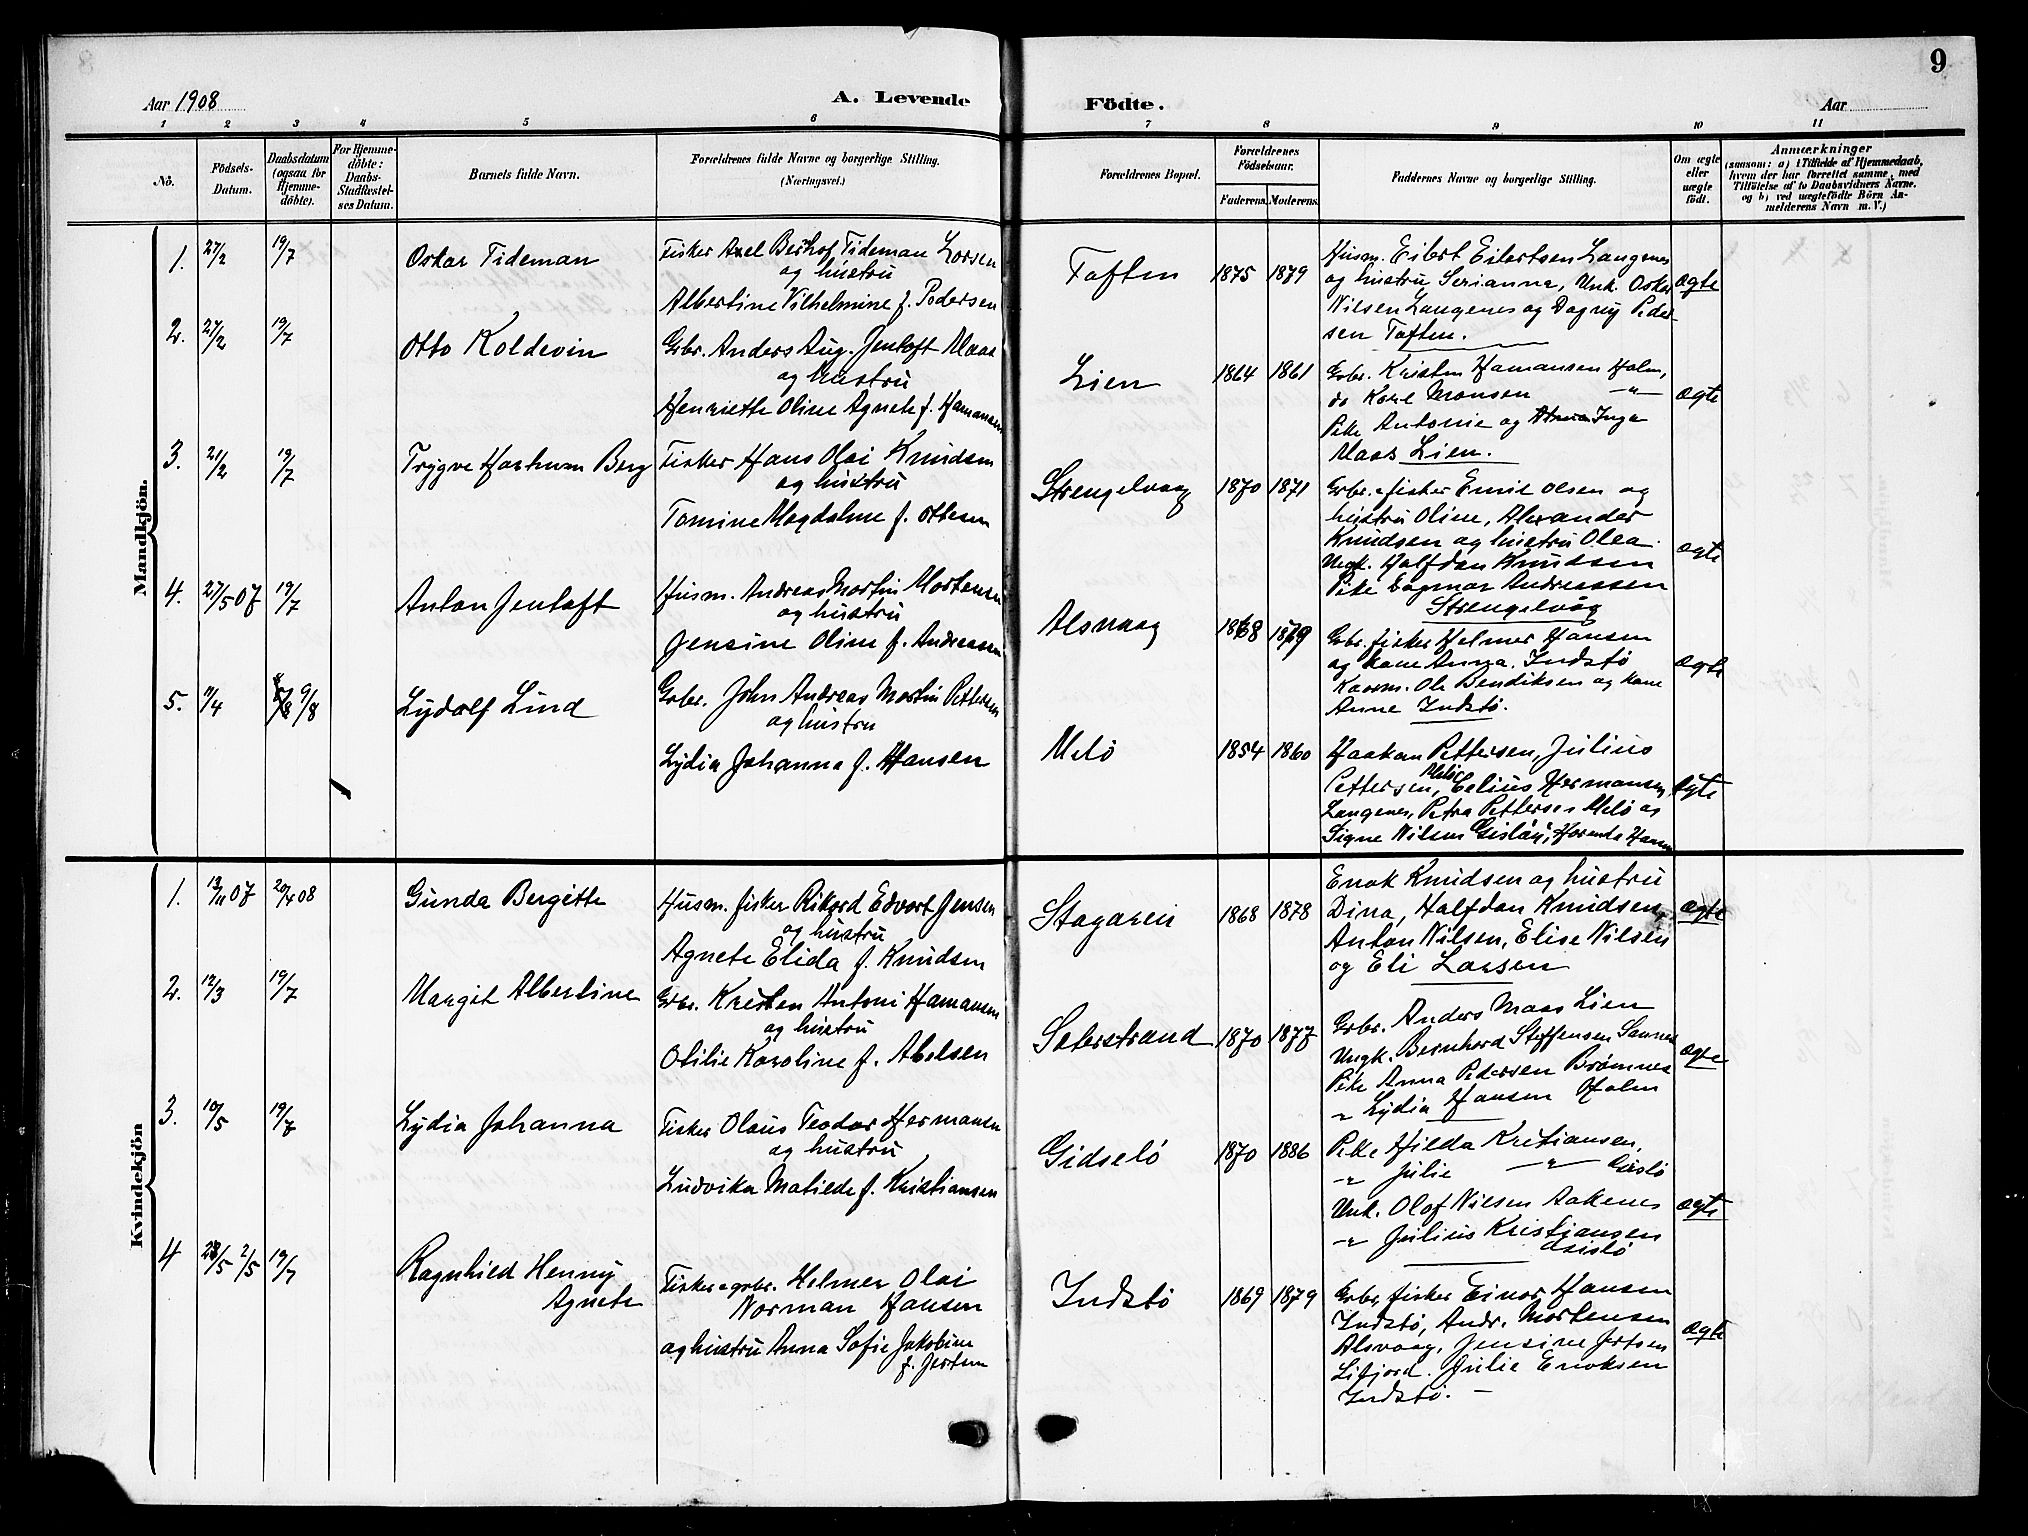 9
Aar 1908
A. Levende
Födte.
Aar
1 2 3 4 5 6 7 8 9 10 11
No.
Födsels-
Datum.
Daabsdatum
(ogsaa for
Hjemme-
döbte).
For Hjemme-
döbte:
Daabs-
Stadfæstel-
ses Datum.
Barnets fulde Navn.
Forældrenes fulde Navne og borgerlige Stilling.
(Næringsvei.)
Forældrenes Bopæl.
Forældrenes
Födselsaar.
Faderens. Moderens.
Faddernes Navne og borgerlige Stilling.
Om ægte
eller
uægte
födt.
Anmærkninger
(saasom: a) i Tilfælde af Hjemmedaab,
hvem der har forrettet samme, med
Tilföielse af to Daabsvidners Navne,
og b) ved uægtefödte Börn An-
melderens Navn m.V.)
Mandkjön.
1. 27/2 19/7 Oskar Tideman
Fisker Axel Tideman Larsen
og hustru
Albertine Vilhelmine f. Pedersen
Toften 1875 1879
Husm. Eilert Eilertsen Langenes
og hustru Serianna, Unk. Oskar
Nilsen Langenes og Dagny Peder-
sen Toften.
ægte
2. 27/2 19/7 Otto Koldevin
Grbr. Anders Aug. Jentoft Maas
og hustru
Henriette Oline Agnete f. Hamansen
Lien 1864 1861
Grbr. Kristen Hamansen Holm,
do Karl Monsen "
Pike Antonie og Inga
Maas Lien.
ægte
3. 21/2 19/7 Trygve Berg
Fisker Hans Olai Knudsen
og hustru
Tomine Magdalene f. Ottesen
Strengelvaag 1870 1871
Grbr. fisker Emil Olsen og
hustru Oline, Alexander
Knudsen og hustru Olea.
Ungk. Halfdan Knudsen
Pike Dagmar Andreassen
Strengelvåg
ægte
4. 27/5 07 19/7 Anton Jentoft
Husm. Andreas Martin Mortensen
og hustru
Jensine Oline f. Andreasen
Alsvaag 1868 1879
Grbr. fisker Helmer Hansen
og kone Anna. Indstö
Kaarm. Ole Bendiksen og kone
Anne Indstö.
ægte
5. 11/4 9/8 Lydolf Lind
Grbr. John Andreas Martin Pettersen
og hustru
Lydia Johanna f. Hansen
Melö 1854 1860
Haakon Pettersen, Julius
Pettersen, Melö Celius Hermansen
Langenes, Petra Pettersen Melö og
Signe Nilsen Gislöy, Hansen
ægte
Kvindekjön
1. 13/11 07 20/4 08 Gunda Bergitte
Husm. fisker Rikard Edvart Jensen
og hustru
Agnete Elida f. Knudsen
1868 1878
Enok Knudsen og hustru
Dina, Halfdan Knudsen,
Anton Nilsen, Elise Nilsen
og Eli Larsen
ægte
2. 12/3 19/7 Margit Albertine
Grbr. Kristen Antoni Hamansen
og hustru
Otilie Karoline f. Abelsen
Seterstrand 1870 1877
Grbr. Anders Maas Lien
Ungk. Bernhard Steffensen Sannes
Pike Anna Pedersen Brömnes
" Lydia Hansen Holm
ægte
3. 10/5 19/7 Lydia Johanna
Fisker Olaus Teodor Hermansen
og hustru
Ludvika Matilde f. Kristiansen
Gidselö 1870 1886
Pike Hilda Kristiansen,
" Julie " Gislö
Unk. Olaf Nilsen Aakenes
" Julius Kristjansen
Gislö
ægte
4 2/5 19/7 Ragnhild Henny
Agnete
Fisker grbr. Helmer Olai
Norman Hansen
og hustru Anna Sofie Jakobine
f. Jertsen
Indstö 1869 1879
Grbr. fisker Einar Hansen
Indstö, Andr. Mortensen
Alsvaag, Jensine Jertsen
Lifjord. Julie Enoksen
Indstö. –
ægte